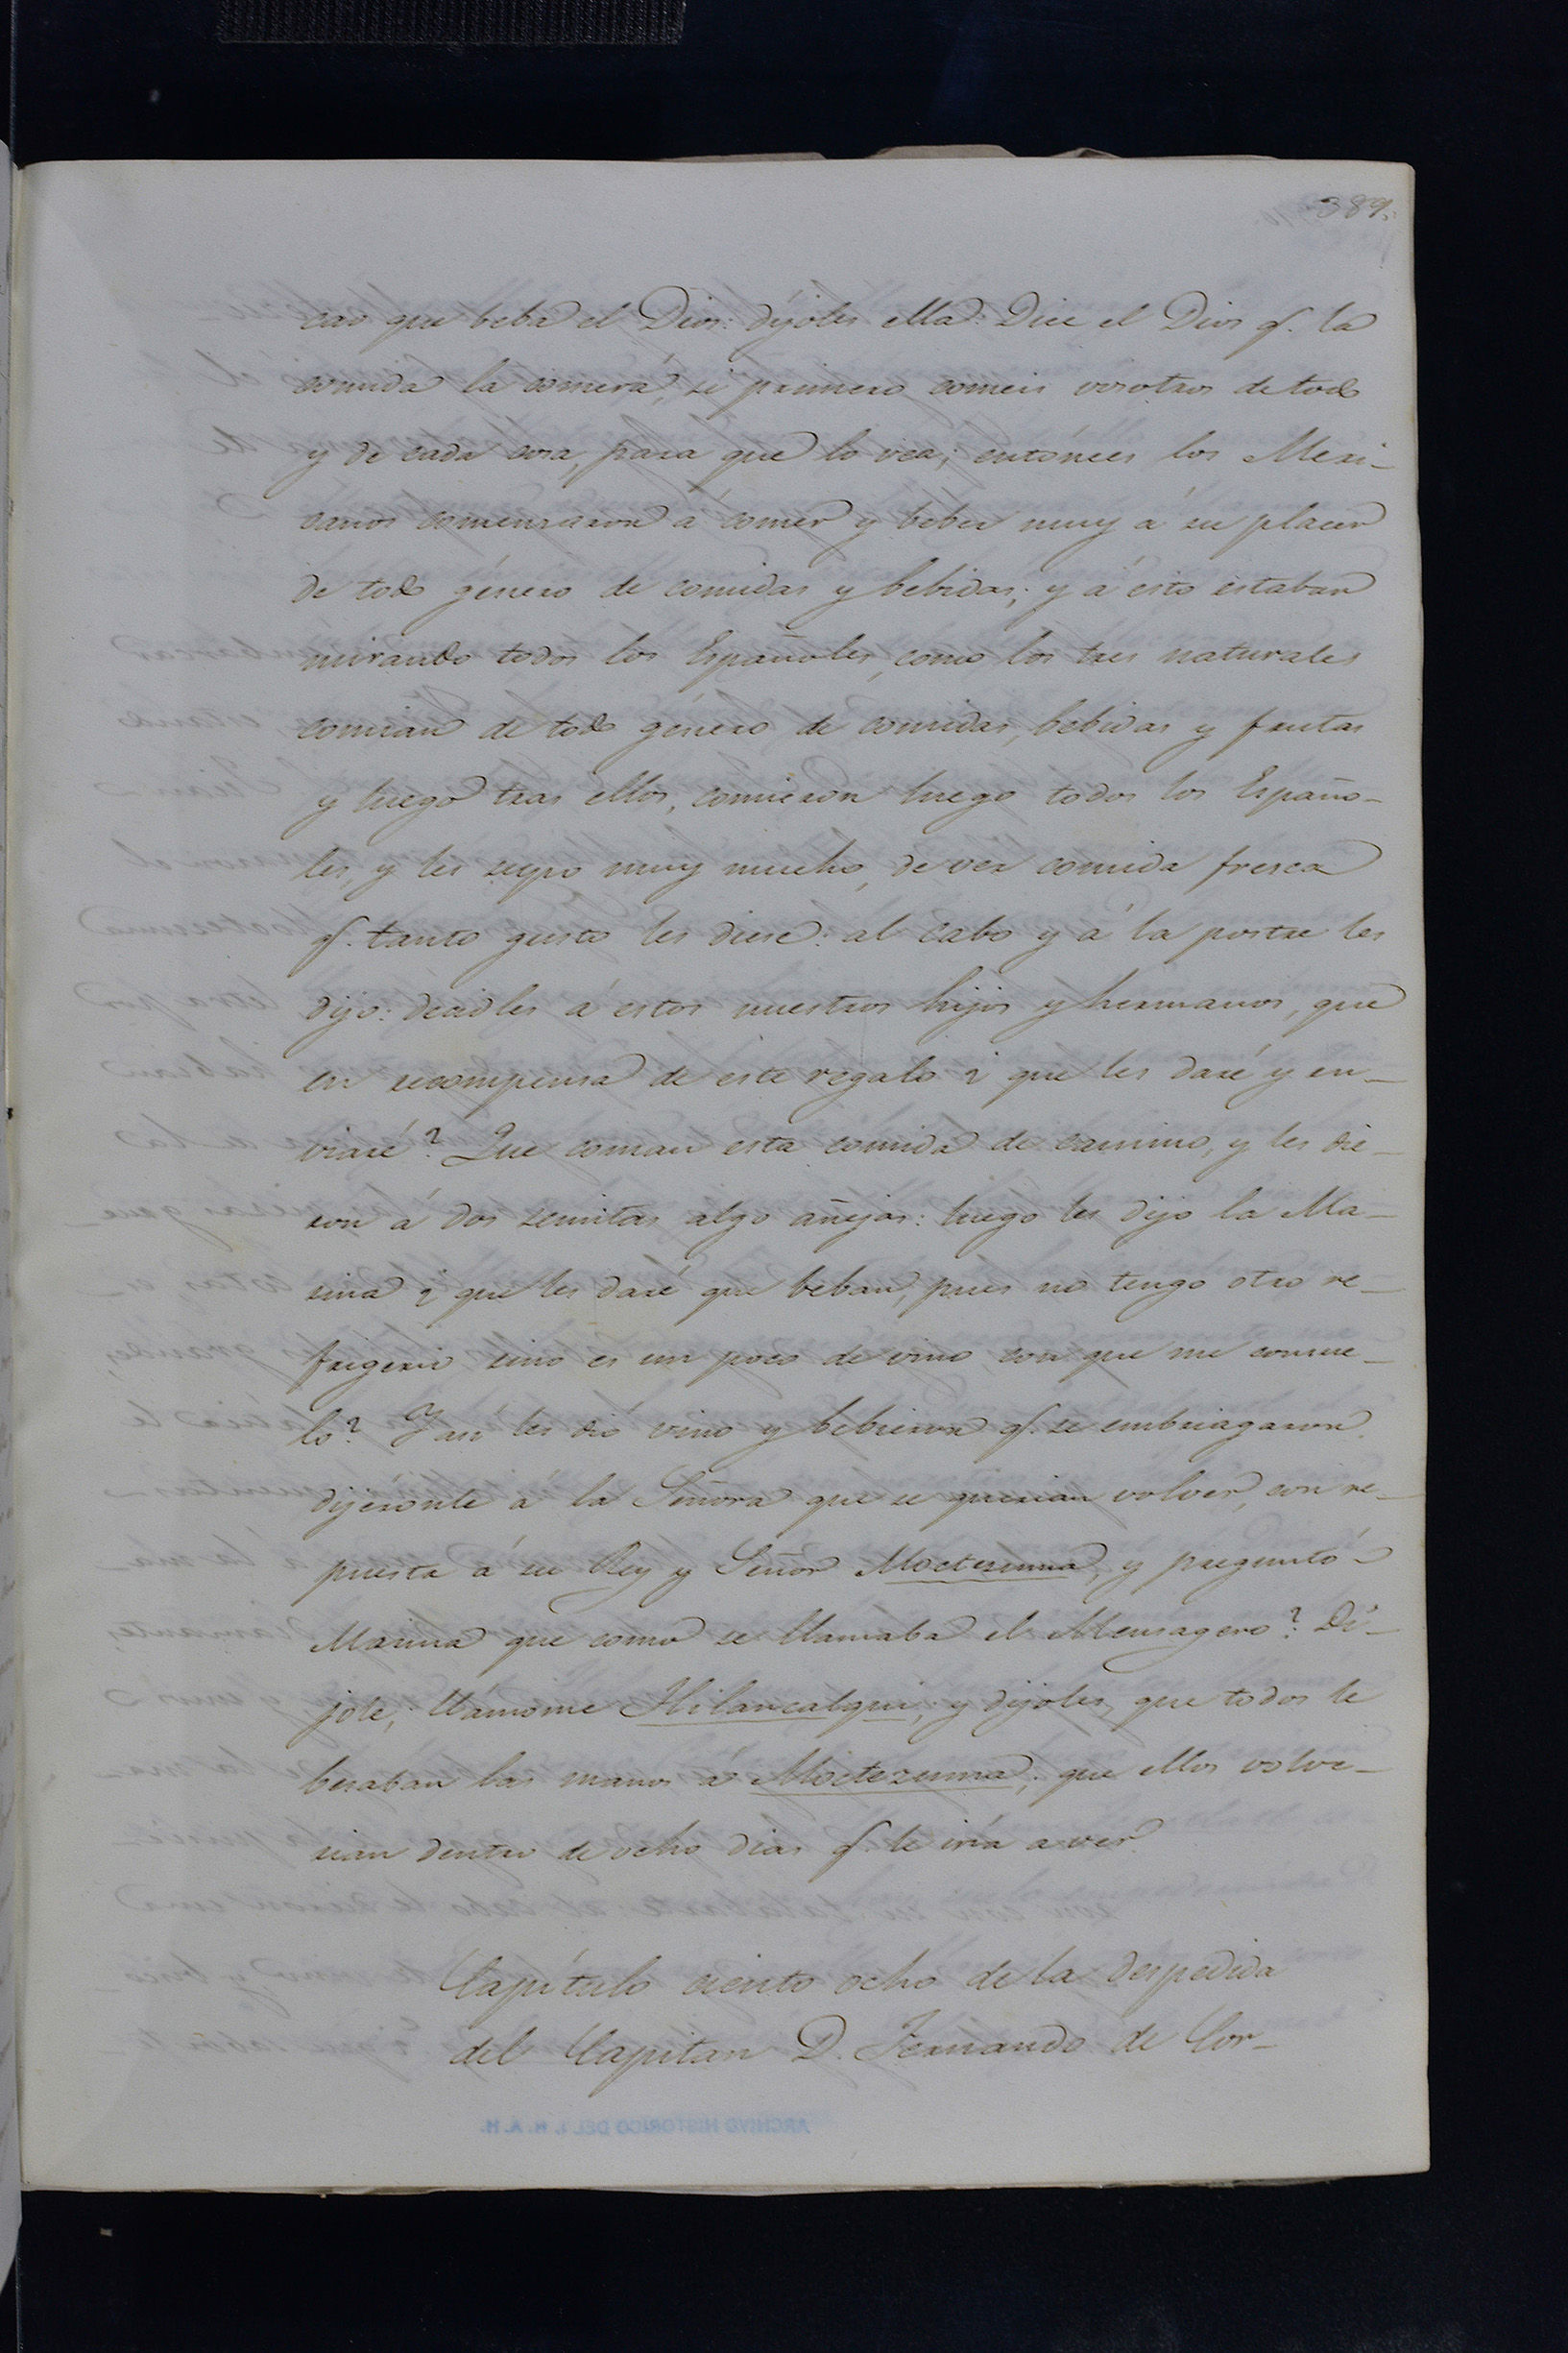 389.
cao que beba el Dios: díjoles ella: Dice el Dios q.e la
comida la comerá, si primero comeis vosotros de todo
y de cada cosa, para que lo vea; entónces los Mexi-
canos comenzaron á comer y beber muy á su placer
de todo género de comidas y bebidas; y á esto estaban
mirando todos los Españoles, como los tres naturales
comian de todo género de comidas, bebidas y frutas
y luego tras ellos, comieron luego todos los Españo-
les, y les supo muy mucho, de ver comida fresca
q.e tanto gusto les diese: al cabo y á la postre les
dijo: decidles á estos nuestros hijos y hermanos, que
en recompensa de este regalo ¿ que les daré y en-
viaré? Que coman esta comida de camino, y les die-
ron á dos semitas algo añejas: luego les dijo la Ma-
rina ¿ que les daré que beban, pues no tengo otro re-
frigerio sino es un poco de vino, con que me consue-
lo? Y así les dió vino y bebieron q.e se embriagaron.
dijéronle á la Señora que se querian volver, con re-
puesta á su Rey y Señor Moctezuma, y preguntó
Marina que como se llamaba el Mensagero? Dí-
jole; llámome Hilancalqui; y díjoles, que todos le
besaban las manos á Moctezuma; que ellos volve-
rian dentro de ocho dias q.e le iría a ver.
Capítulo ciento ocho de la despedida
del Capitan D. Fernando de Cor-
ARCHIVO HISTORICO DEL I. N. A. H.